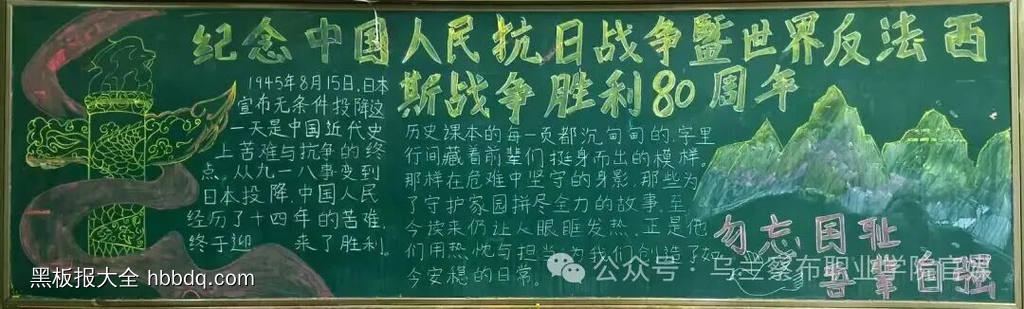 纪念中国人民抗日战争暨世界反法西
斯战争胜利80周年
1945年8月15日，日本
宣布无条件投降这
一天是中国近代史
上苦难与抗争的终
点。从九一八事变到
日本投降，中国人民
经历了十四年的苦难，
终于迎 来了胜利
历史课本的每一页都沉甸甸的，字里
行间藏着前辈们挺身而出的模样。
那样在危难中坚守的身影，那些为
了守护家园拼尽全力的故事，至
今读来仍让人眼眶发热，正是他
们用热忱与担当，为我们创造了如
今安稳的日常。
勿忘国耻
吾辈自强
黑板报大全 hbbdq.com
公众号·乌兰察布职业学院官媒